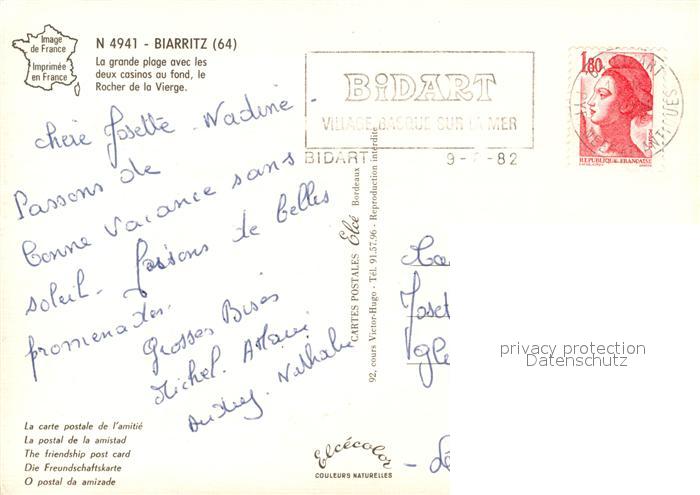 Image
de France
Imprimée
en France
N 4941 - BIARRITZ (64)
La grande plage avec les
deux casinos au fond, le
Rocher de la Vierge.
BiDART
VILLAGE BASQUE SUR LA MER
BIDART
9- -82
1,80
REPUBLIQUE FRANÇAISE
chère Josette - Nadine -
Passons de
bonne vacance sans
soleil - faisons de belles
promenades.
Grosses Bises
Michel.
Audrey. Nathalie
CARTES POSTALES Elcé Bordeaux
92, cours Victor-Hugo - Tél. 91.57.96 - Reproduction interdite
privacy protection
Datenschutz
La carte postale de l'amitié
La postal de la amistad
The friendship post card
Die Freundschaftskarte
O postal da amizade
Elcécolor
COULEURS NATURELLES